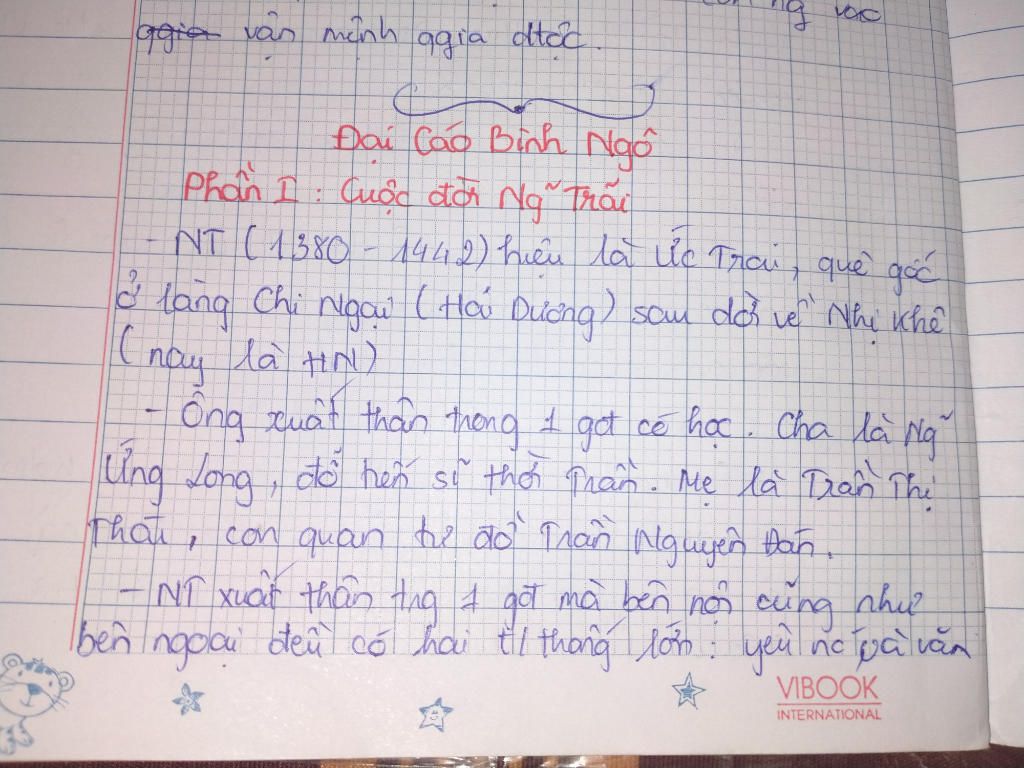 vận mệnh qgia dtộc.
Đại Cáo Bình Ngô
Phần I : Cuộc đời Ng~ Trãi
- NT (1380 - 1442) hiệu là Ức Trai, quê gốc
ở làng Chi Ngại (Hải Dương) sau dời về Nhị Khê
(nay là HN)
- Ông xuất thân trong 1 gđt có học. Cha là Ng~
Ứng Long, đỗ tiến sĩ thời Trần. Mẹ là Trần Thị
Thái, con quan tư đồ Trần Nguyên Đán.
- NT xuất thân tng 1 gđt mà bên nội cũng như
bên ngoại đều có hai t/thống lớn : yêu nc và văn
VIBOOK
INTERNATIONAL